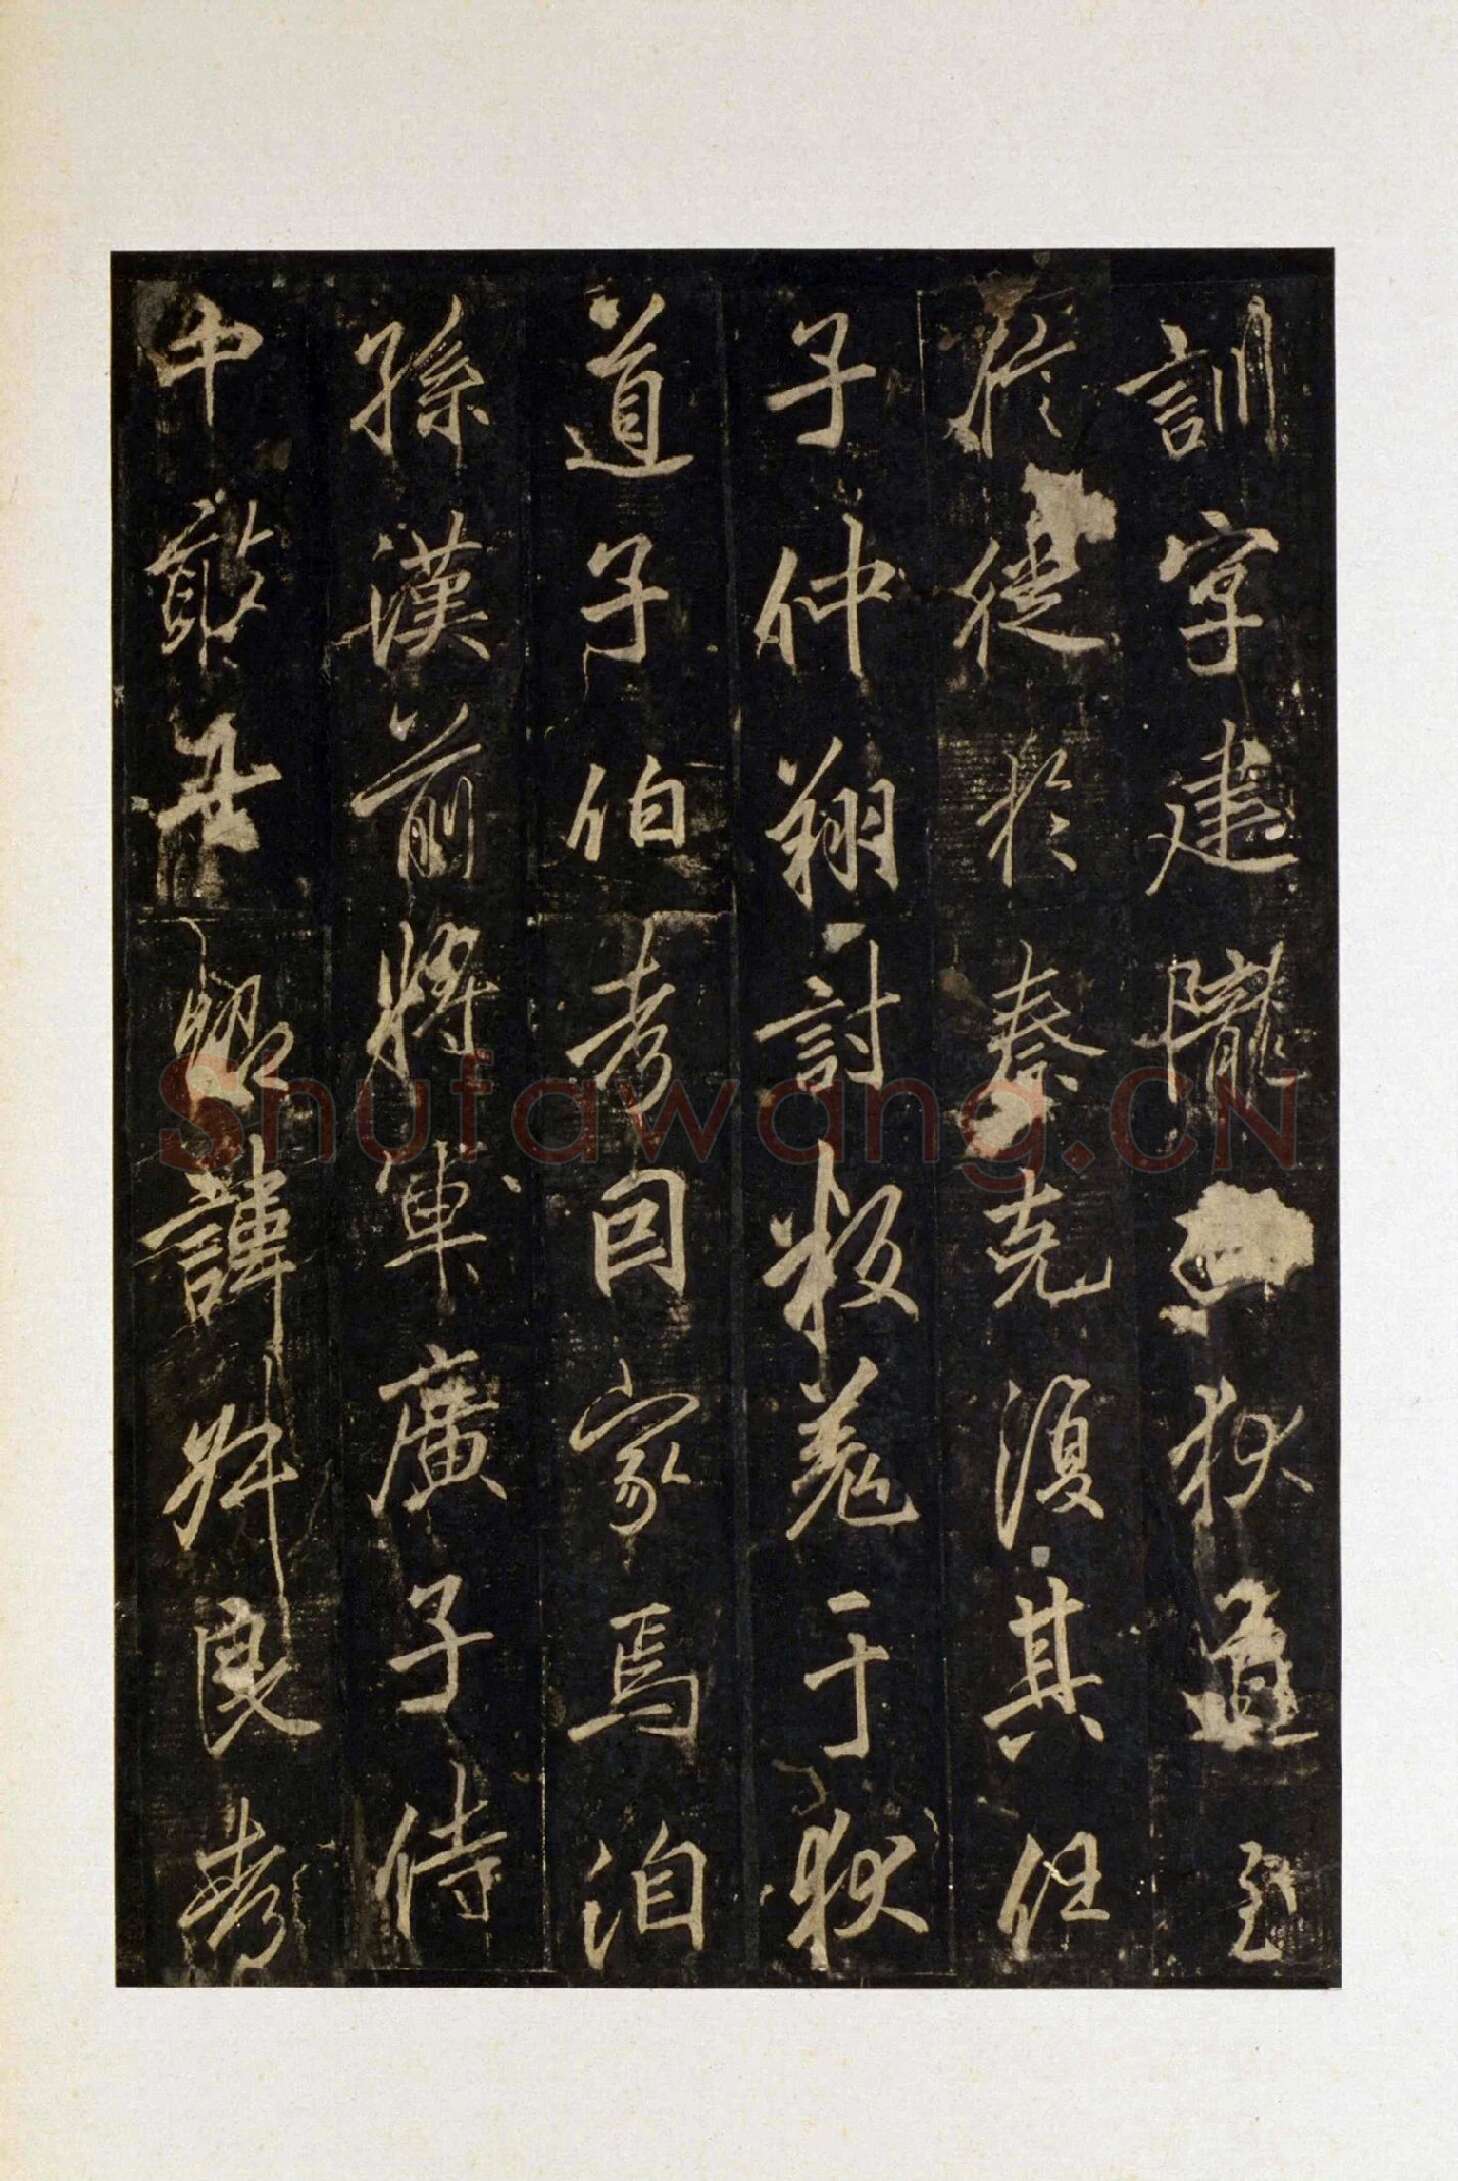 訓字建隴狄道至
於徙於秦克復其任
子仲翔討叛羌于狄
道子伯考因家焉洎
孫漢前將軍廣子侍
中敢昭諱叔良考
Shufawang.CN